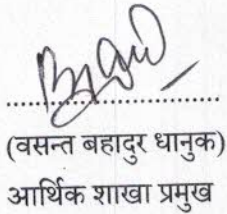 (वसन्त बहादुर धानुक)
आर्थिक शाखा प्रमुख